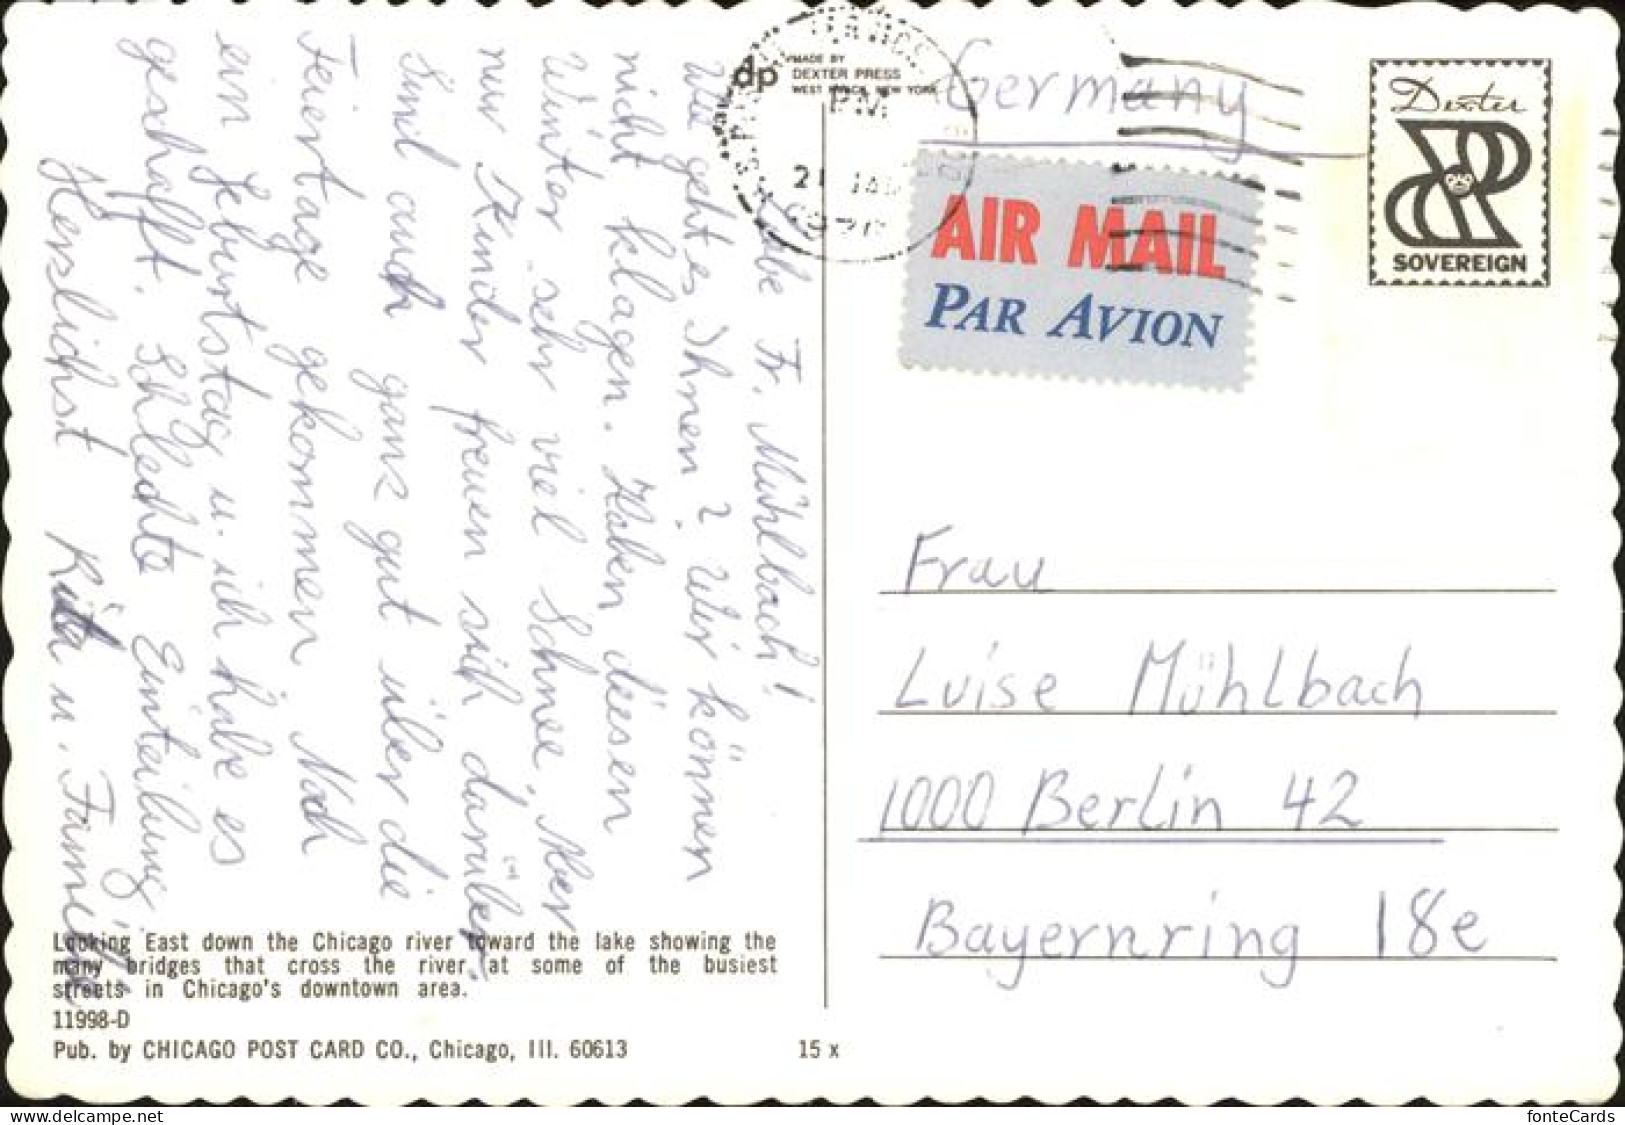 Liebe Fr. Mühlbach!
Wie geht es Ihnen? Wir können
nicht klagen. Haben diesen
Winter sehr viel Schnee. Aber
nur Kinder freuen sich darüber.
Sind auch ganz gut über die
Feiertage gekommen. Noch
ein Geburtstag u. ich habe es
geschafft. Schlechte Einteilung
Herzlichst Rita u. Familie
dp MADE BY
DEXTER PRESS
WEST NYACK, NEW YORK
PM
21 JAN
Germany
AIR MAIL
PAR AVION
Dexter
SOVEREIGN
Frau
Luise Mühlbach
1000 Berlin 42
Bayernring 18e
Looking East down the Chicago river toward the lake showing the
many bridges that cross the river at some of the busiest
streets in Chicago's downtown area.
11998-D
Pub. by CHICAGO POST CARD CO., Chicago, Ill. 60613
15 x
www.delcampe.net
fonteCards